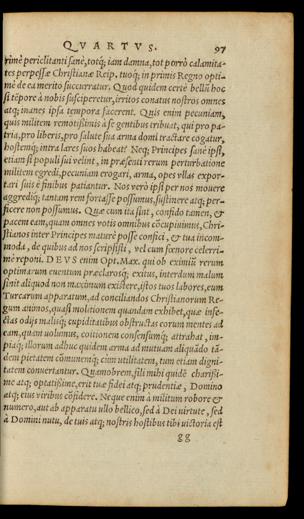 QVARTVS. 97
rimè periclitanti sanè, totq́; iam damna, tot porrò calamita-
tes perpessæ Christianæ Reip. tuoq́; in primis Regno opti-
mè de ea merito succurratur. Quod quidem certè bellũ hoc
si tẽpore à nobis susciperetur, irritos conatus nostros omnes
atq; inanes ipsa tempora facerent. Quis enim pecuniam,
quis militem remotissimis à se gentibus tribuat, qui pro pa-
tria, pro liberis, pro salute sua arma domi tractare cogatur,
hostemq́; intra lares suos habeat? Neq; Principes sanè ipsi,
etiam si populi sui velint, in præsenti rerum perturbatione
militem egredi, pecuniam erogari, arma, opes vllas expor-
tari suis è finibus patiantur. Nos verò ipsi per nos mouere
aggrediq́; tantam rem fortasse possumus, sustinere atq; per-
ficere non possumus. Quæ cum ita sint, confido tamen, &
pacem eam, quam omnes votis omnibus cõcupiuimus, Chri-
stianos inter Principes maturè posse confici, & tua incom-
moda, de quibus ad nos scripsisti, vel cum fœnore celerri-
mè reponi. DEVS enim Opt. Max. qui ob eximiũ rerum
optimarum euentum præclarosq́; exitus, interdum malum
sinit aliquod non maximum existere, istos tuos labores, eum
Turcarum apparatum, ad conciliandos Christianorum Re-
gum animos, quasi molitionem quandam exhibet, quæ infe-
ctas odijs malisq́; cupiditatibus obstructas eorum mentes ad
eam, quam volumus, coitionem consensumq́; attrahat, im-
piaq́; illorum adhuc quidem arma ad mutuam aliquãdo tã-
dem pietatem cõmunemq́; cùm vtilitatem, tum etiam digni-
tatem conuertantur. Quamobrem, fili mihi quidẽ charissi-
me atq; optatissime, erit tuæ fidei atq; prudentiæ, Domino
atq; eius viribus cõfidere. Neque enim à militum robore &
numero, aut ab apparatu vllo bellico, sed à Dei virtute, sed
à Domini nutu, de tuis atq; nostris hostibus tibi victoria est
gg